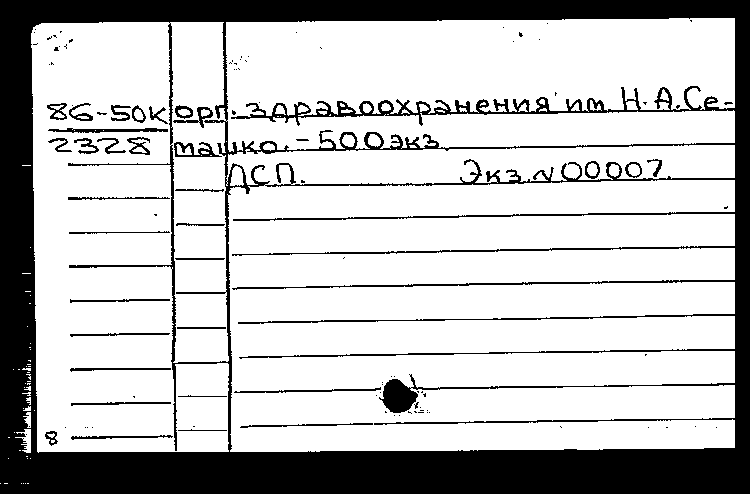 86-50к орг. здравоохранения им Н.А.Се-
2328 машко. - 500экз
ДСП. Экз. N 00007.
8